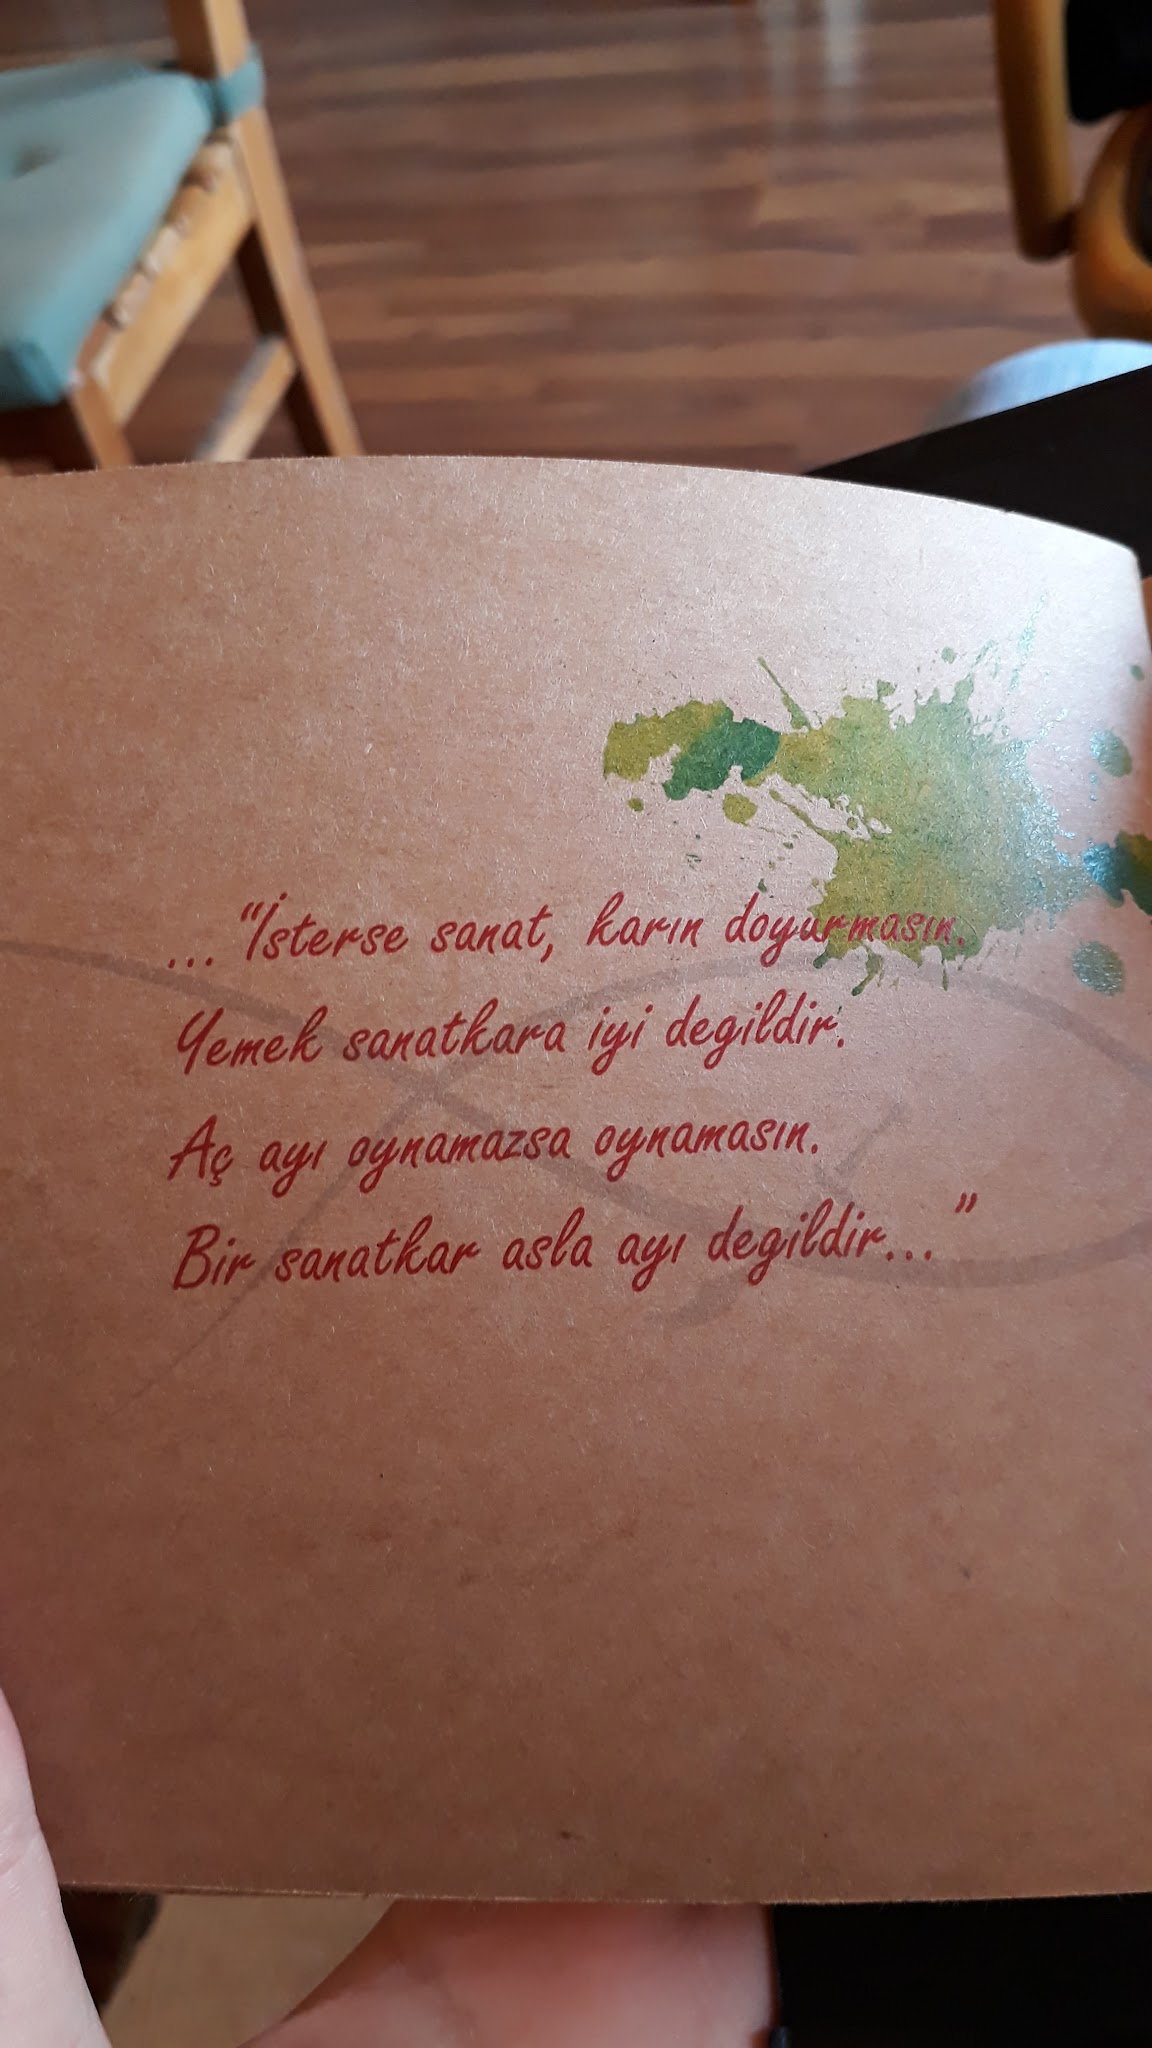 ... "İsterse sanat, karın doyurmasın.
Yemek sanatkara iyi degildir.
Aç ayı oynamazsa oynamasın.
Bir sanatkar asla ayı degildir..."